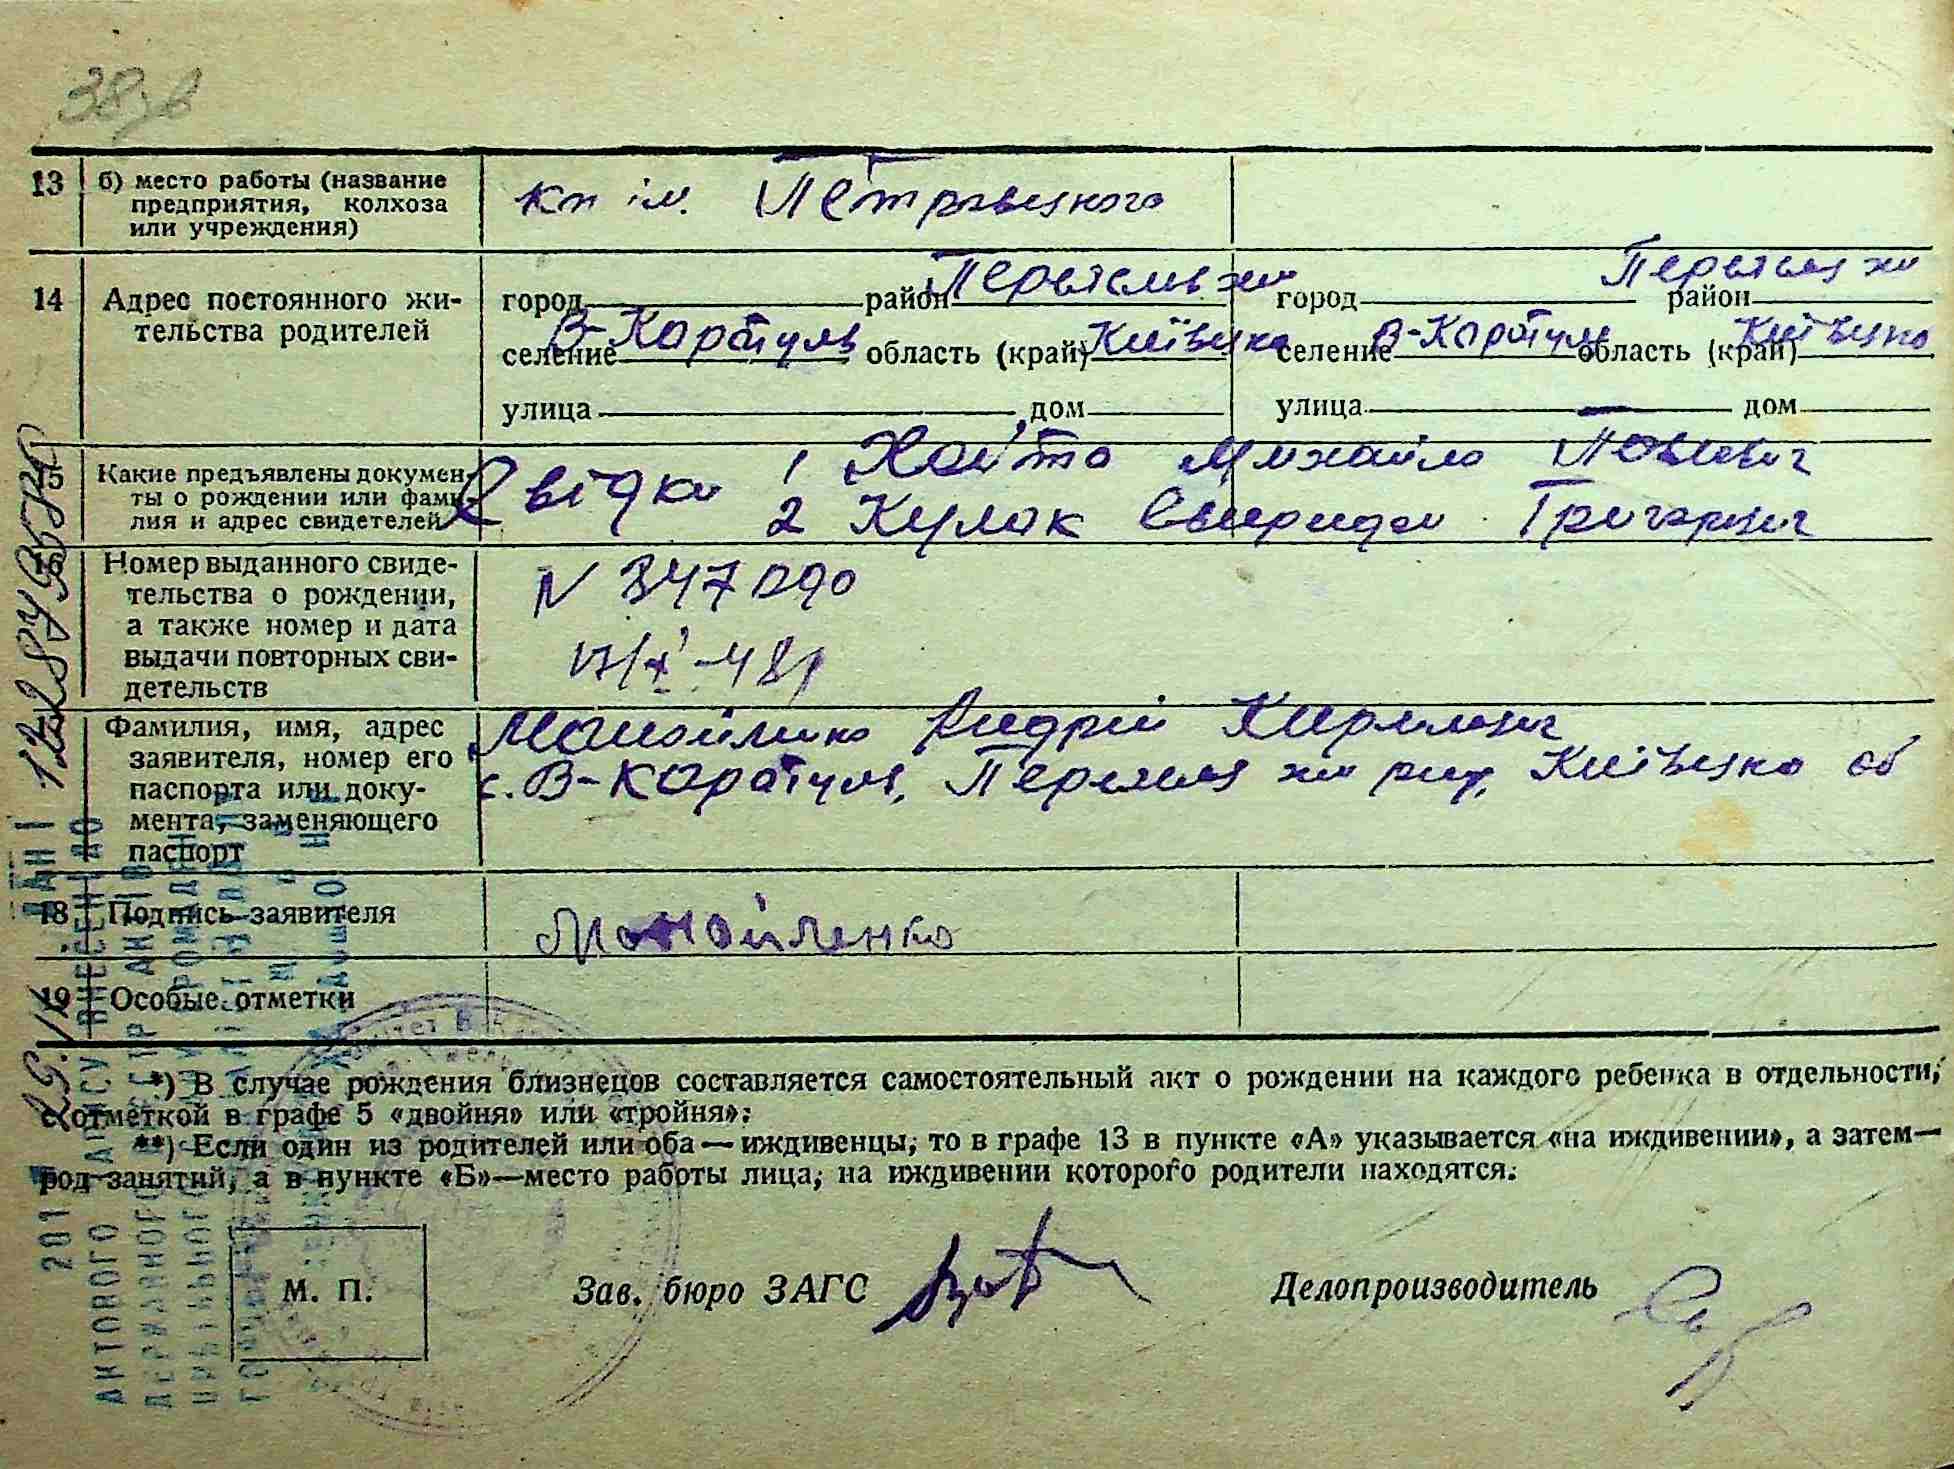 13 б) место работы (название
предприятия, колхоза
или учреждения)
кт ім. Петровського
14 Адрес постоянного жи-
тельства родителей
город район Переяславський город район Переяслав ський
селение В-Каратуль область (край) Київська селение В-Каратуль область (край) Київська
улица дом улица дом
15 Какие предъявлены докумен-
ты о рождении или фами-
лия и адрес свидетелей
Свідки 1 Хойта Михайло Павлович
2 Кулак Свиридон Григорович
16 Номер выданного свиде-
тельства о рождении,
а также номер и дата
выдачи повторных сви-
детельств
N 347090
17/X-48р
17 Фамилия, имя, адрес
заявителя, номер его
паспорта или доку-
мента, заменяющего
паспорт
Манойленко Андрій Кирилович
с. В-Каратуль, Переяслав ський рну, Київська об
18 Подпись заявителя
Манойленко
19 Особые отметки
*) В случае рождения близнецов составляется самостоятельный акт о рождении на каждого ребенка в отдельности,
с отметкой в графе 5 «двойня» или «тройня».
**) Если один из родителей или оба—иждивенцы, то в графе 13 в пункте «А» указывается «на иждивении», а затем—
род занятий, а в пункте «Б»—место работы лица, на иждивении которого родители находятся.
М. П. Зав. бюро ЗАГС Делопроизводитель